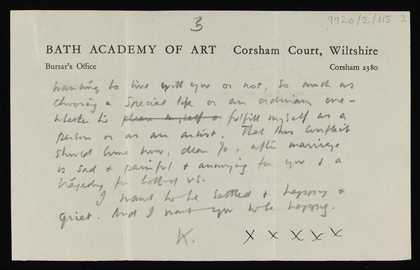 3
9920/2/115 2
BATH ACADEMY OF ART Corsham Court, Wiltshire
Bursar's Office Corsham 2580
wanting to live with you or not, so much as
choosing a special life or an ordinary one—
whether to please myself or fulfill myself as a
person or as an artist. That this conflict
should come now, dear Jo, after marriage
is sad & painful & annoying for you & a
tragedy for both of us.
I want to be settled & happy &
quiet. And I want you to be happy.
K. X X X X X